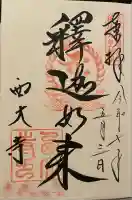 奉拝 令和七年
五月三日
釋迦如来
西大寺